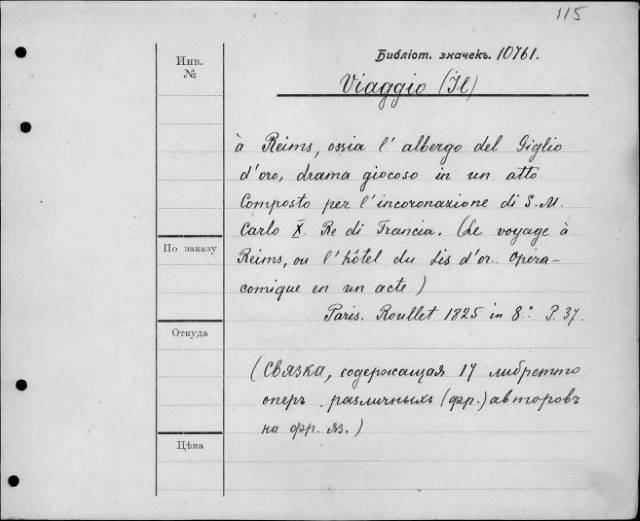 115
Инв.
№
Библіот. значекъ. 10761.
Viaggio (Il)
à Reims, ossia l'albergo del Giglio
d'oro, drama giocoso in un atto
Composto per l'incoronazione di S.M.
Carlo X. Re di Francia. (Le voyage à
По заказу
Reims, ou l'hôtel du Lis d'or. Opéra-
comique en un acte)
Paris. Roullet 1825 in 8º. P. 37.
Откуда
(Связка, содержащая 17 либретто
оперъ различныхъ (фр.) авторовъ
на фр. яз.)
Цѣна